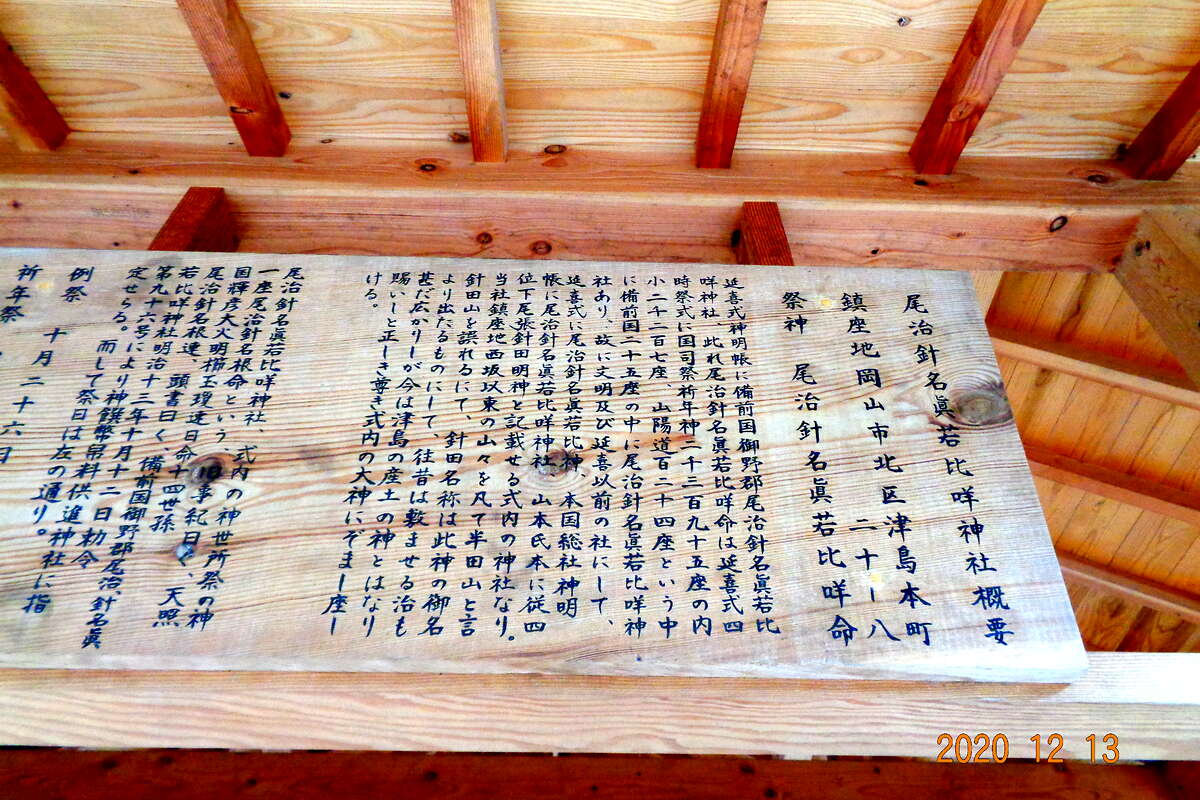 尾治針名眞若比咩神社概要
鎮座地岡山市北区津島本町
二十ー八
祭神　尾治針名眞若比咩命
延喜式神明帳に備前国御野郡尾治針名眞若比
咩神社、此れ尾治針名眞若比咩命は延喜式四
時祭式に国司祭祈年神二千三百九十五座の内
小二千二百七座、山陽道百二十四座という中
に備前国二十五座の中に尾治針名眞若比咩神
社あり、故に文明及び延喜以前の社にして、
延喜式に尾治針名眞若比神、本国総社神明
帳に尾治針名眞若比咩神社、山本氏本に従四
位下尾張針田明神と記載せる式内の神社なり。
当社鎮座地西坂以東の山々を凡て半田山と言
針田山を誤れるにて、針田名称は此神の御名
より出たるものにして、往昔は数ませる治も
甚だ広かりしが今は津島の産土の神とはなり
賜いしと正しき尊き式内の大神にぞまし座し
ける。
尾治針名眞若比咩神社、
一座尾治針名根命という、式内の神世所祭の神
国輝彦火火明櫛玉瓊速日命十四世孫
尾治針名根連　頭書曰く　旧事紀曰く、天照
若比咩神社明治十三年十月十二日　備前国御野郡尾治、針名眞
第九十六号により神饌幣帛料供進神社に指
定せらる。而して祭日は左の通り。
例祭　十月二十六日
祈年祭
2020 12 13